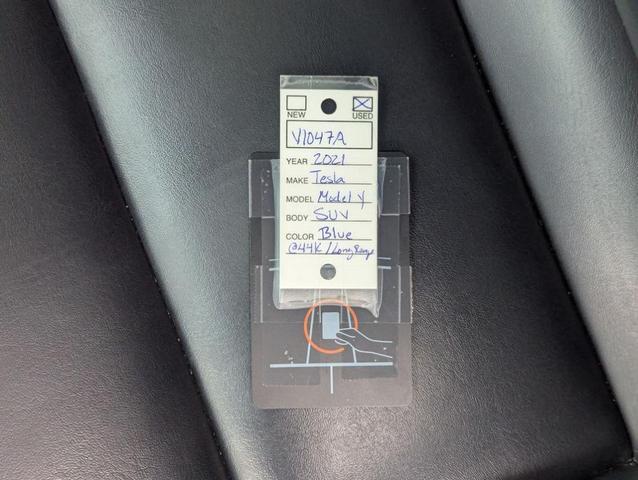 NEW USED
V1047A
YEAR 2021
MAKE Tesla
MODEL Model Y
BODY SUV
COLOR Blue
@44K / Long Range